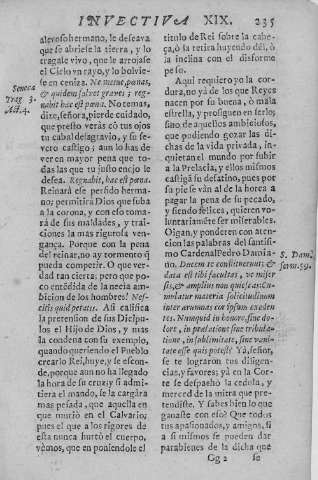 INVECTIVA XIX. 235
alevoso hermano, le deseava
que se abriese la tierra, y lo
tragase vivo, que le arrojase
el Cielo vn rayo, y lo bolvie-
se en ceniza. Ne metue, pœnas,
& quidem solvet graves; reg-
nabit hæc est pœna. No temas,
dize, señora, pierde cuidado,
que presto veràs cõ tus ojos
tu cabal desagravio, y su se-
vero castigo; aun lo has de
ver en mayor pena que to-
das las que tu justo enojo le
desea. Regnabit, hæc est pœna.
Reinarà ese perfido herma-
no; permitirà Dios que suba
a la corona, y con eso toma-
rà de sus maldades, y trai-
ciones la mas rigurosa ven-
gança. Porque con la pena
del reinar, no ay tormento q̃
pueda competir. O que ver-
dad tan cierta; pero que po-
co entẽdida de la necia am-
bicion de los hombres! Nes-
citis quid petatis. Asi califica
la pretension de sus Discipu-
los el Hijo de Dios, y mas
la condena con su exemplo,
quando queriendo el Pueblo
crearlo Rei, huye, y se escon-
de, porque aun no ha llegado
la hora de su cruz; y si admi-
tiera el mando, se la cargàra
mas pesada, que aquella en
que muriò en el Calvario;
pues el que a los rigores de
esta nunca hurtò el cuerpo,
vèmos, que en poniendole el
Seneca
Trag. 3.
Act. 4.
titulo de Rei sobre la cabe-
ça, ò la retira huyendo dèl, ò
la inclina con el disforme
peso.
Aqui requiero yo la cor-
dura, no yà de los que Reyes
nacen por su buena, ò mala
estrella, y prosiguen en serlo;
sino de aquellos ambiciosos,
que podiendo gozar las di-
chas de la vida privada, in-
quietan el mundo por subir
a la Prelacia, y ellos mismos
castigã su desatino, pues por
su pie se vàn al de la horca a
pagar la pena de su pecado,
y siendo felices, quieren vo-
luntariamẽte ser miserables.
Oigan, y ponderen con aten-
cion las palabras del santisi-
mo Cardenal Pedro Damia-
no. Decem te constituentur; &
data est tibi facultas, ve miser
sis, & amplius non quiescas. Cu-
mulatur materia solicitudinum
inter ærumnas cor ipsum exeden-
tes. Nunquid in honore, sine do-
lore, in prælatione sine tribula-
tione, in sublimitate, sine vani-
tate esse quis potest? Yà, señor,
se te lograron tus diligen-
cias, y favores; yà en la Cor-
te se despachò la cedula, y
merced de la mitra que pre-
tendiste. Y sabes bien lo que
ganaste con eso? Que todos
tus apasionados, y amigos, si
a sì mismos se pueden dar
parabienes de la dicha que
S. Dam.
serm. 59.
Gg 2 se